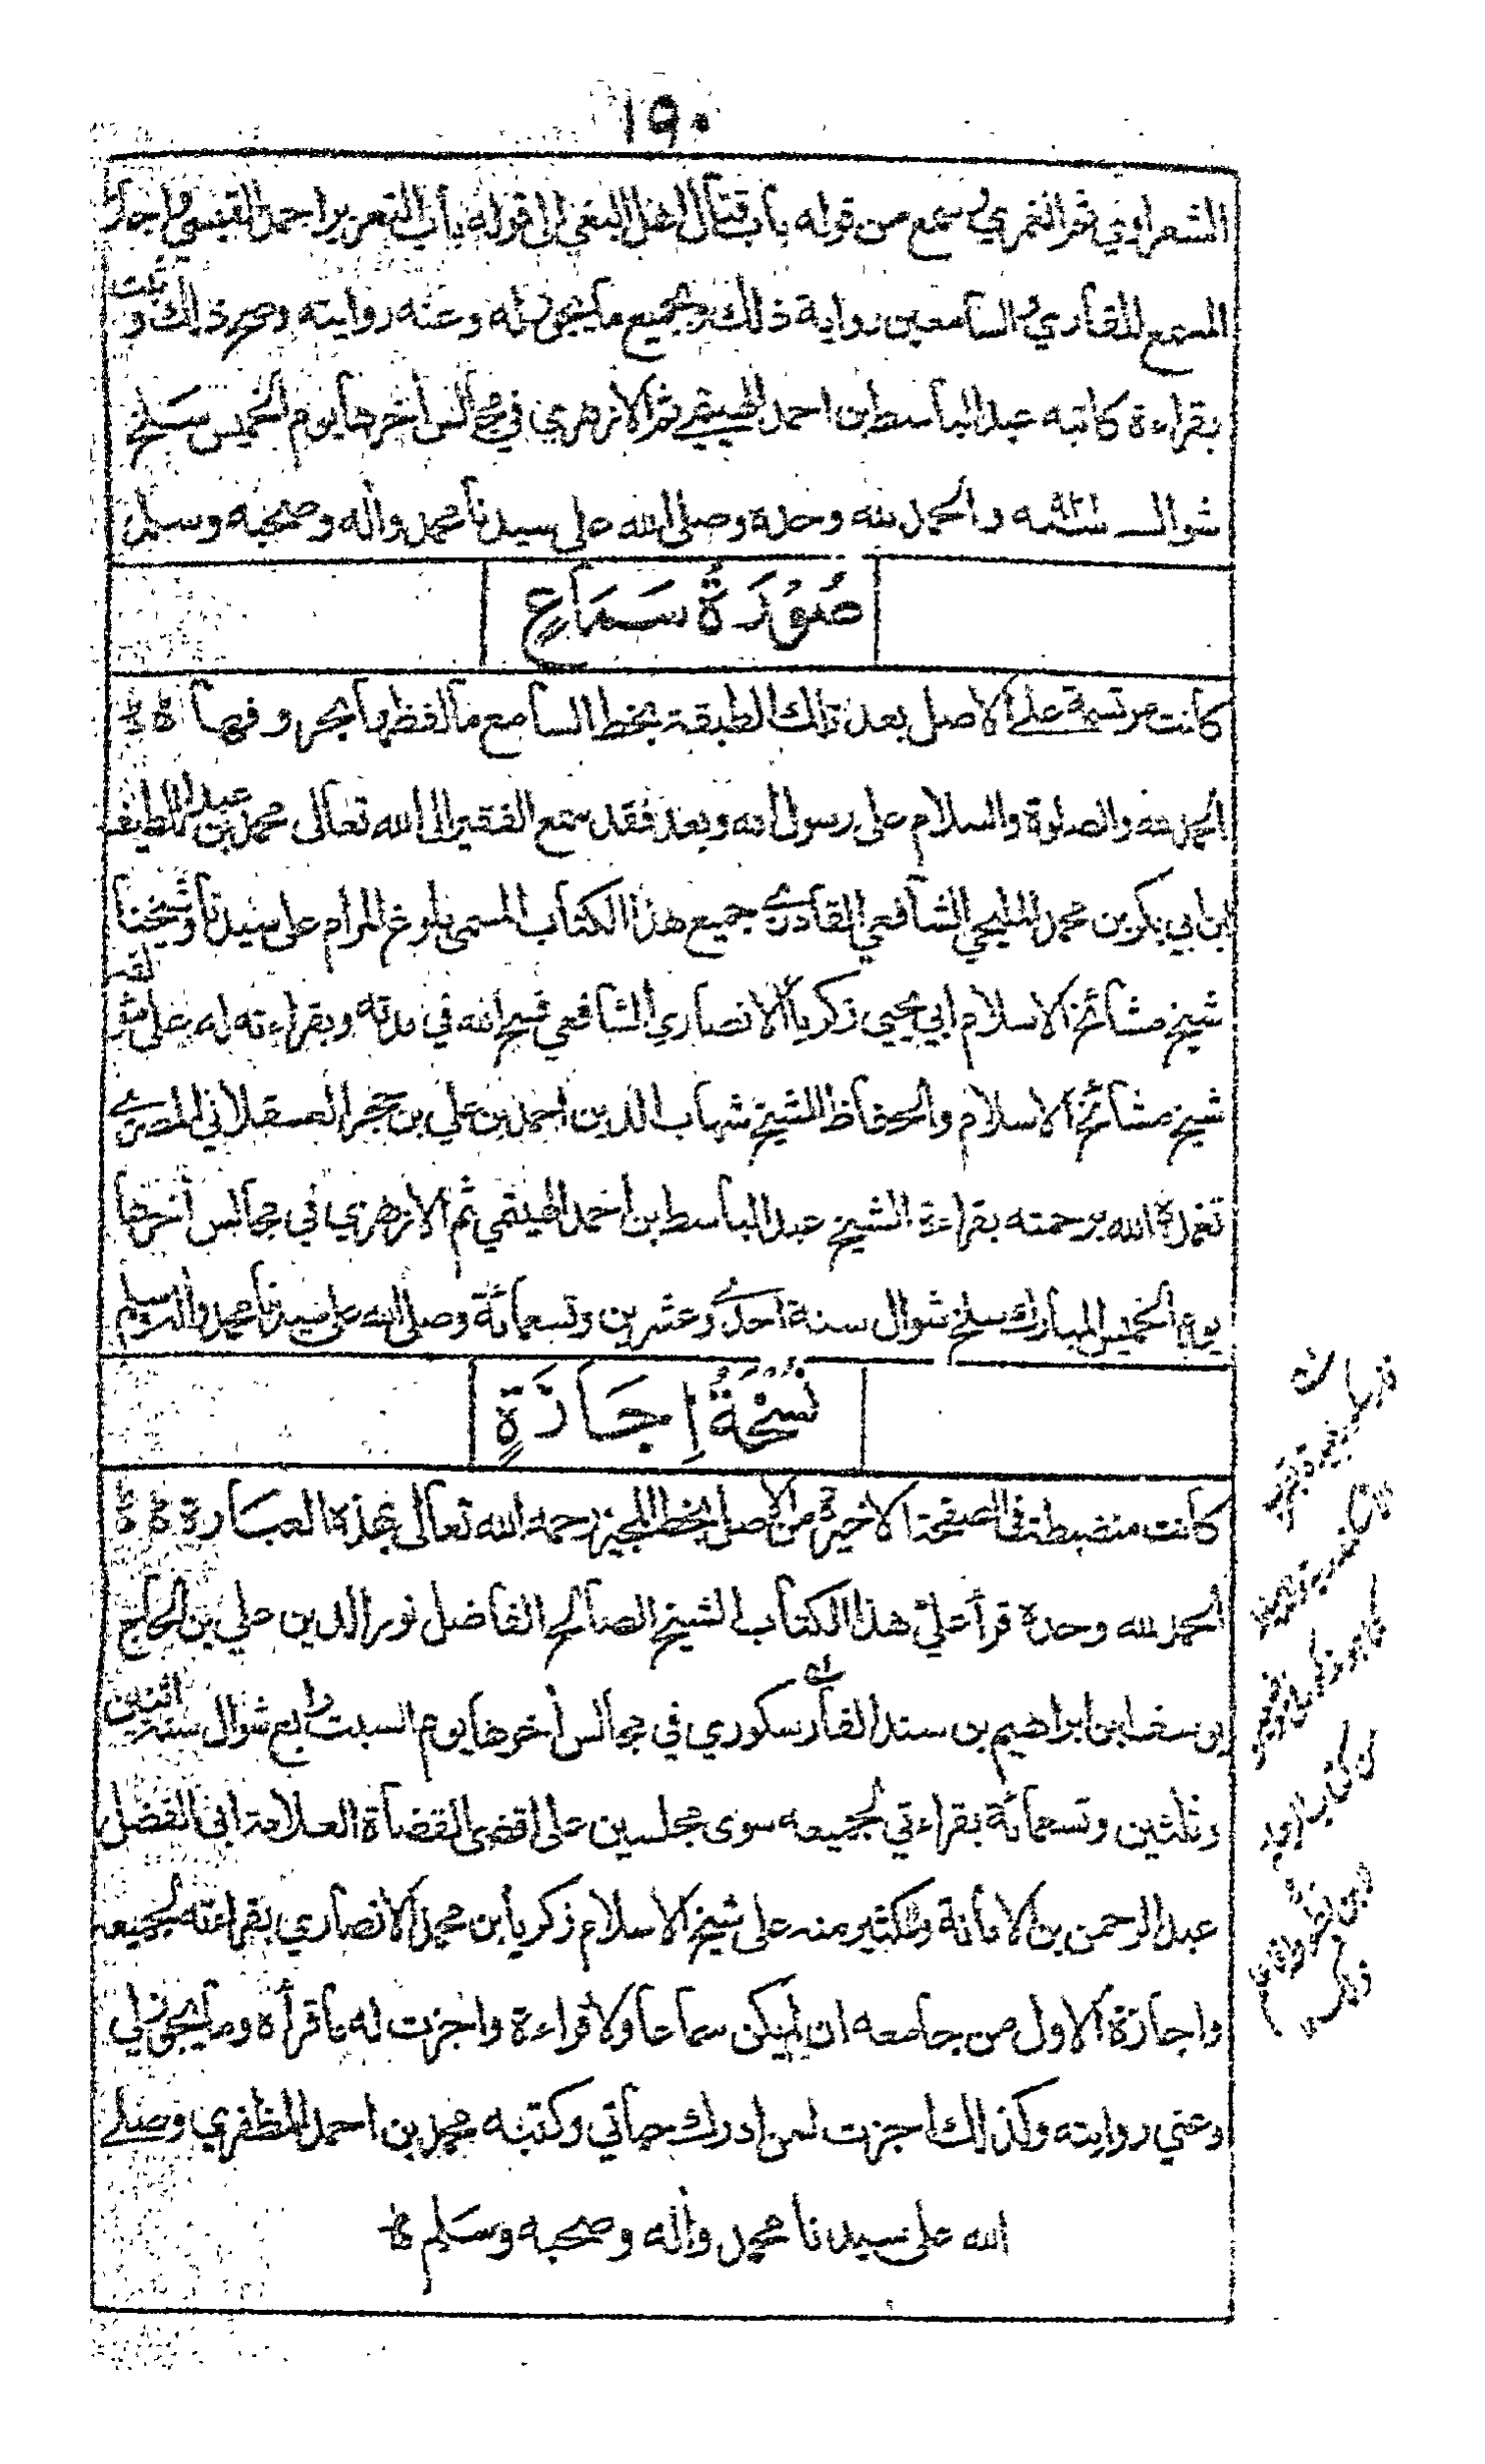 ١٩٠
الشعراوي ثم الغمري سمع من قوله باب قتال اهل البغي الى قوله باب التعزير احمد القيسي واجاز
المسمع للقاري والسامعين رواية ذلك وجميع ما يجوز له وعنه روايته وصح ذلك وثبت
بقراءة كاتبه عبد الباسط بن احمد الهيثمي ثم الازهري في مجالس أخرها يوم الخميس سلخ
شوال سنة ٩٢١ والحمد لله وحده وصلى الله على سيدنا محمد واله وصحبه وسلم
صُوْرَةُ سَمَاعٍ
كانت مرتسمة على الاصل بعد تلك الطبقة بخط السامع ما لفظها بحروفها
الحمد لله والصلوة والسلام على رسول الله وبعد فقد سمع الفقير الى الله تعالى محمد بن عبد اللطيف
ابن ابي بكر بن محمد المليجي الشافعي القادري جميع هذا الكتاب المسمى بلوغ المرام على سيدنا وشيخنا
شيخ مشائخ الاسلام ابي يحيى زكريا الانصاري الشافعي فسح الله في مدته وبقراءته له على مؤلفه
شيخ مشائخ الاسلام والحفاظ الشيخ شهاب الدين احمد بن علي بن حجر العسقلاني المصري
تغمده الله برحمته بقراءة الشيخ عبد الباسط بن احمد الهيثمي ثم الازهري في مجالس أخرها
يوم الخميس المبارك سلخ شوال سنة احدى وعشرين وتسعمائة وصلى الله على سيدنا محمد واله وسلم
نُسْخَةُ اِجَازَةٍ
كانت منضبطة في الصفحة الاخيرة من الاصل بخط المجيز رحمه الله تعالى بهذه العبارة
الحمد لله وحده قرأ علي هذا الكتاب الشيخ الصالح الفاضل نور الدين علي بن الحاج
يوسف ابن ابراهيم بن سند الفارسكوري في مجالس أخرها يوم السبت رابع شوال سنة اثنين
وثلثين وتسعمائة بقراءتي لجميعه سوى مجلسين على اقضى القضاة العلامة ابي الفضل
عبد الرحمن بن الامانة والكثير منه على شيخ الاسلام زكريا بن محمد الانصاري بقراءته لجميعه
واجازة الاول من جامعه ان لم يكن سماعا ولا قراءة واجزت له ما قرأه وما يجوز لي
وعني روايته وكذلك اجزت لمن ادرك حياتي وكتبه محمد بن احمد المظفري وصلى
الله على سيدنا محمد واله وصحبه وسلم